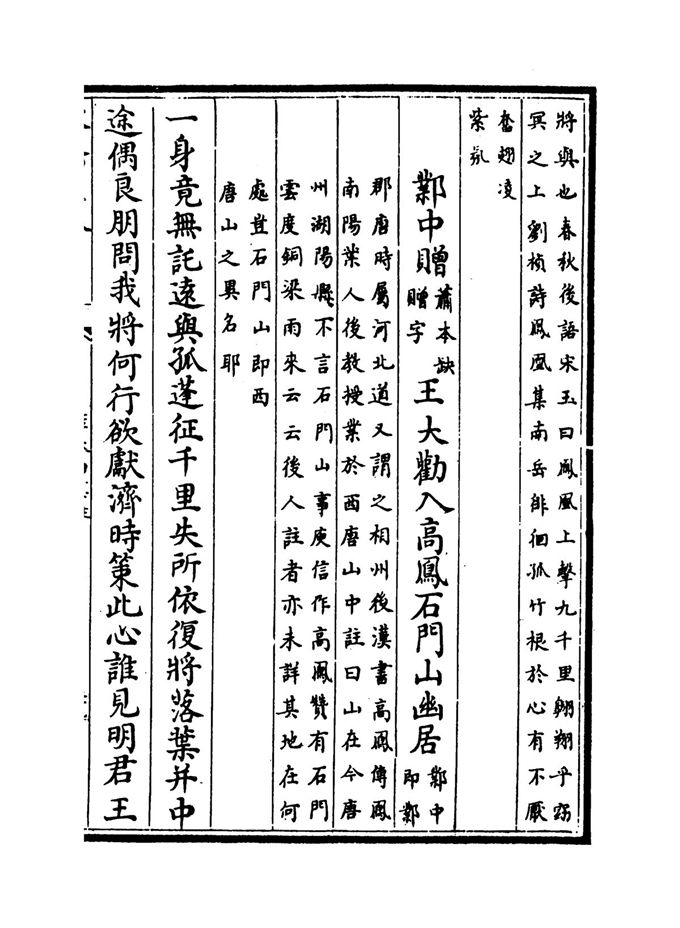 將與也春秋後語宋玉曰鳳凰上擊九千里翺翔乎窈
冥之上劉楨詩鳳凰集南岳徘徊孤竹根於心有不厭
奮翅凌
紫氛
鄴中贈蕭本缺贈字王大勸入高鳳石門山幽居鄴中即鄴
郡唐時屬河北道又謂之相州後漢書高鳳傳鳳
南陽葉人後教授業於西唐山中註曰山在今唐
州湖陽縣不言石門山事庾信作高鳳贊有石門
雲度銅梁雨來云云後人註者亦未詳其地在何
處豈石門山即西
唐山之異名耶
一身竟無託遠與孤蓬征千里失所依復將落葉并中
途偶良朋問我將何行欲獻濟時策此心誰見明君王